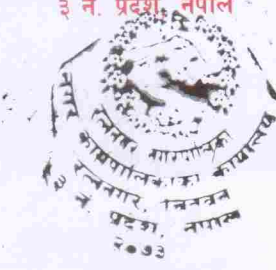 ३ नं. प्रदेश, नेपाल
नगरपालिका
नगर कार्यपालिकाको कार्यालय
रत्ननगर, चितवन
३ नं. प्रदेश, नेपाल
२०७३